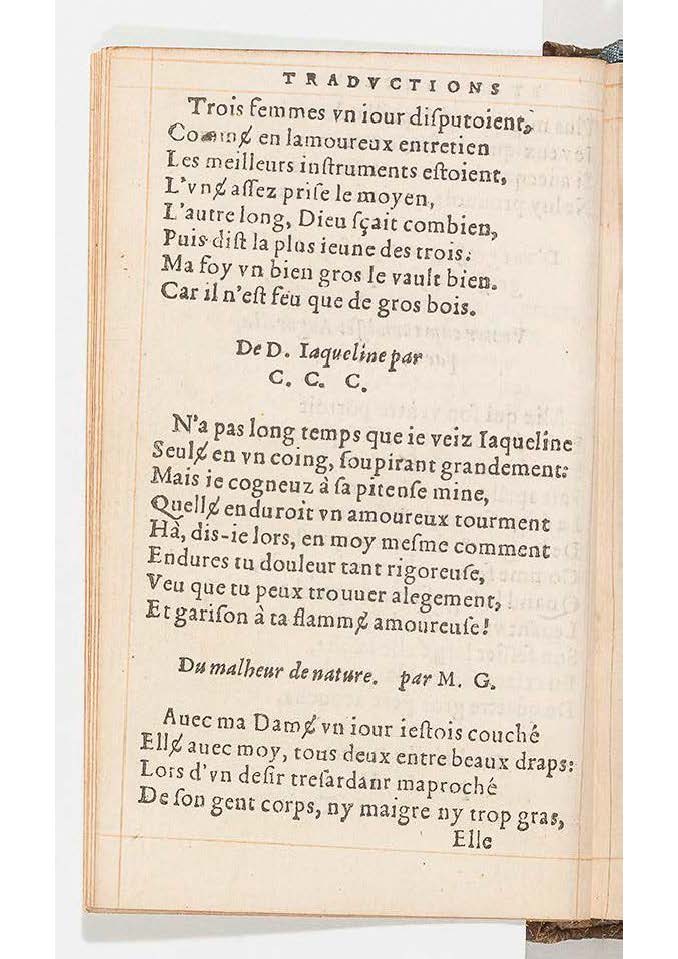 TRADVCTIONS
Trois femmes vn iour diſputoient,
Comme̸ en lamoureux entretien
Les meilleurs inſtruments eſtoient,
L'vne̸ aſſez priſe le moyen,
L'autre long, Dieu ſçait combien,
Puis diſt la plus ieune des trois:
Ma foy vn bien gros le vault bien.
Car il n'eſt feu que de gros bois.
De D. Iaqueline par
C. C. C.
N'a pas long temps que ie veiz Iaqueline
Seule̸ en vn coing, ſoupirant grandement:
Mais ie cogneuz à ſa pitenſe mine,
Quelle̸ enduroit vn amoureux tourment
Hà, dis-ie lors, en moy meſme comment
Endures tu douleur tant rigoreuſe,
Veu que tu peux trouuer alegement,
Et gariſon à ta flamme̸ amoureuſe!
Du malheur de nature. par M. G.
Auec ma Dame̸ vn iour ieſtois couché
Elle̸ auec moy, tous deux entre beaux draps:
Lors d'vn deſir treſardant maproché
De ſon gent corps, ny maigre ny trop gras,
Elle